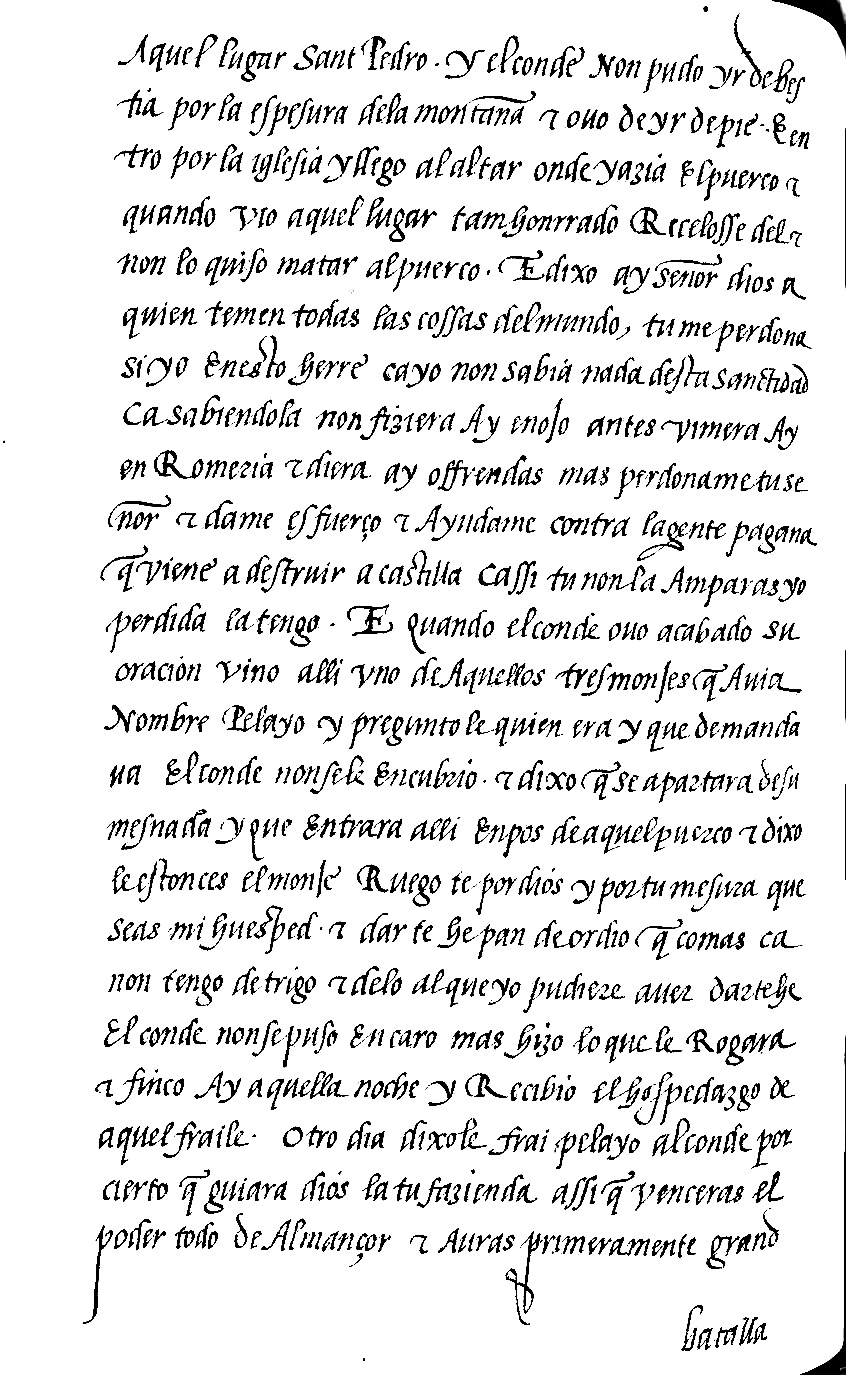 Aquel lugar Sant Pedro. y el conde Non pudo yr de bes
tia por la espesura dela montaña τ ouo de yr de pie. E en
tro por la iglesia y llego al altar onde yazia El puerco τ
quando vio aquel lugar tam honrrado Recelosse del τ
non lo quiso matar al puerco. E dixo ay señor dios a
quien temen todas las cossas del mundo, tu me perdona
si yo En esto herre ca yo non sabia nada desta sanctidad
Ca sabiendola non fiziera Ay enojo antes vimera Ay
en Romeria τ diera ay offrendas mas perdoname tu se
ñor τ dame esfuerço τ Ayudame contra la gente pagana
q̃ viene a destruir a castilla Ca ssi tu non la Amparas yo
perdida la tengo. E quando el conde ouo acabado su
oracion vino alli vno de Aquellos tres monjes q̃ Auia
Nombre Pelayo y pregunto le quien era y que demanda
ua El conde non se le Encubrio. τ dixo q̃ se apartara de su
mesnada y que Entrara alli En pos de aquel puerco τ dixo
le estonces el monje Ruego te por dios y por tu mesura que
seas mi huesped. τ dar te he pan de ordio q̃ comas ca
non tengo de trigo τ delo al que yo pudiere auer darte he
El conde non se puso En caro mas hizo lo que le Rogara
τ finco Ay aquella noche y Recibio el hospedazgo de
aquel fraile. Otro dia dixole frai pelayo al conde por
cierto q̃ guiara dios la tu fazienda assi q̃ venceras el
poder todo de Almançor τ Auras primeramente grand
batalla